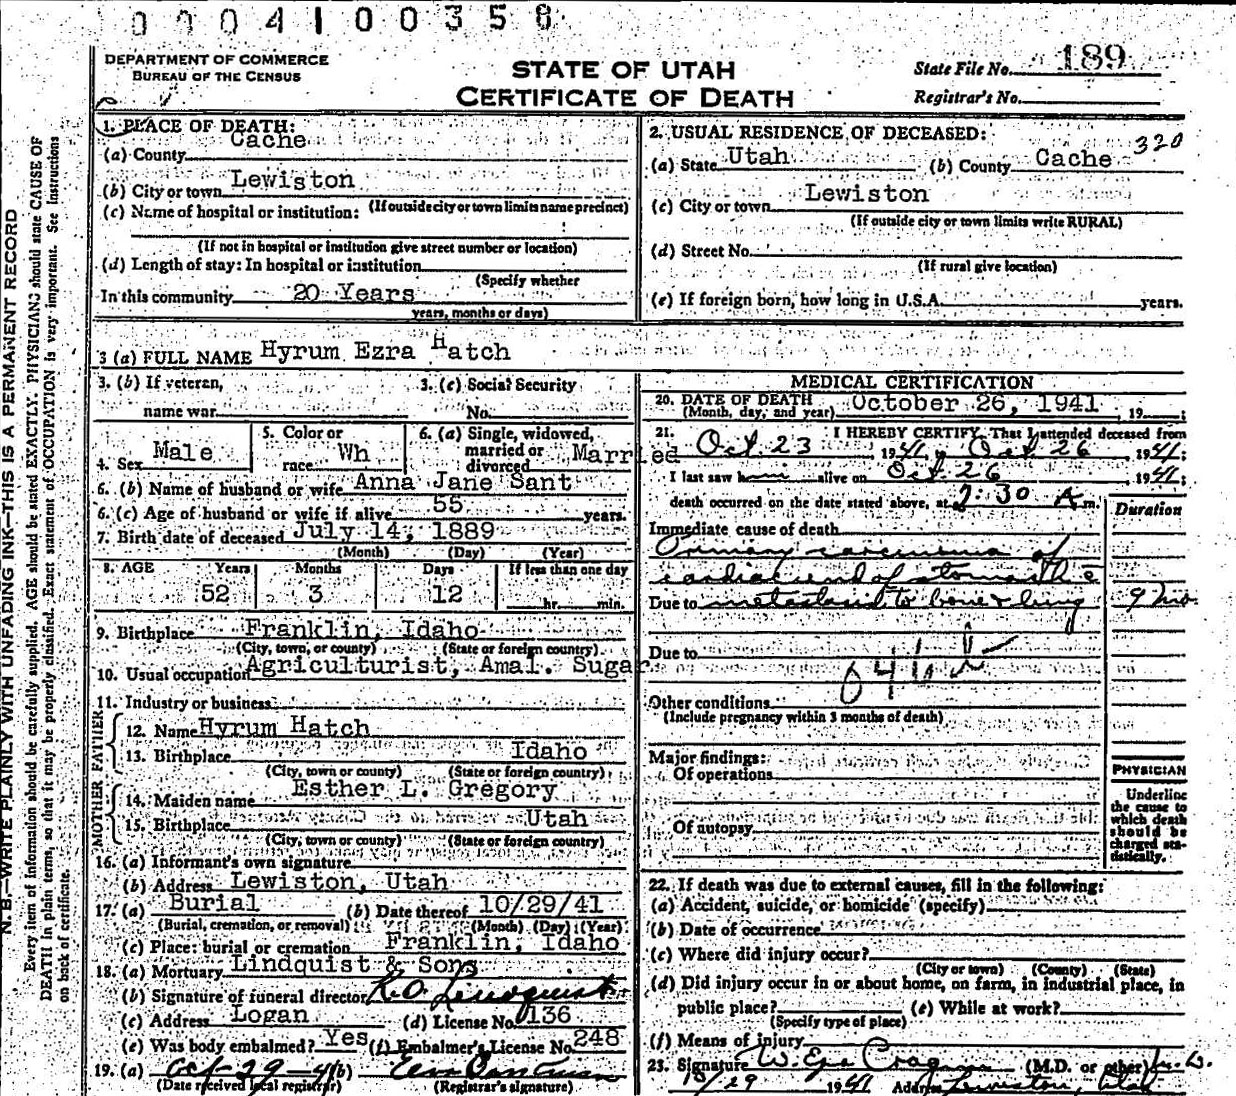 0004100358
DEPARTMENT OF COMMERCE
BUREAU OF THE CENSUS
STATE OF UTAH
CERTIFICATE OF DEATH
State File No. 189
Registrar's No.
N. B.—WRITE PLAINLY WITH UNFADING INK—THIS IS A PERMANENT RECORD
Every item of information should be carefully supplied. AGE should be stated EXACTLY. PHYSICIANS should state CAUSE OF
DEATH in plain terms, so that it may be properly classified. Exact statement of OCCUPATION is very important. See instructions
on back of certificate.
1. PLACE OF DEATH:
(a) County Cache
(b) City or town Lewiston
(If outside city or town limits name precinct)
(c) Name of hospital or institution:
(If not in hospital or institution give street number or location)
(d) Length of stay: In hospital or institution
(Specify whether
In this community 20 Years
years, months or days)
2. USUAL RESIDENCE OF DECEASED:
320
(a) State Utah (b) County Cache
(c) City or town Lewiston
(If outside city or town limits write RURAL)
(d) Street No.
(If rural give location)
(e) If foreign born, how long in U.S.A. years.
3 (a) FULL NAME Hyrum Ezra Hatch
3. (b) If veteran, 3. (c) Social Security
name war No.
4. Sex Male 5. Color or race Wh 6. (a) Single, widowed, married or divorced Married
6. (b) Name of husband or wife Anna Jane Sant
6. (c) Age of husband or wife if alive 55 years.
7. Birth date of deceased July 14, 1889
(Month) (Day) (Year)
8. AGE Years Months Days If less than one day
52 3 12 hr. min.
9. Birthplace Franklin, Idaho
(City, town, or county) (State or foreign country)
10. Usual occupation Agriculturist, Amal. Sugar
11. Industry or business
FATHER
12. Name Hyrum Hatch
13. Birthplace Idaho
(City, town or county) (State or foreign country)
MOTHER
14. Maiden name Esther L. Gregory
15. Birthplace Utah
(City, town or county) (State or foreign country)
16. (a) Informant's own signature
(b) Address Lewiston, Utah
17. (a) Burial (b) Date thereof 10/29/41
(Burial, cremation, or removal) (Month) (Day) (Year)
(c) Place: burial or cremation Franklin, Idaho
18. (a) Mortuary Lindquist & Sons
(b) Signature of funeral director R.O. Lindquist
(c) Address Logan (d) License No. 136
(e) Was body embalmed? Yes (f) Embalmer's License No. 248
19. (a) Oct-29-41 (b)
(Date received local registrar) (Registrar's signature)
MEDICAL CERTIFICATION
20. DATE OF DEATH
(Month, day, and year) October 26, 1941, 19 ;
21. I HEREBY CERTIFY, That I attended deceased from
Oct. 23 1941, Oct. 26 1941;
I last saw him alive on Oct. 26 1941;
death occurred on the date stated above, at 2:30 A m.
Duration
Immediate cause of death
Primary carcinoma of
cardiac end of stomach c̄
Due to metastasis to bone & lung 9 mo.
Due to
046b
Other conditions
(Include pregnancy within 3 months of death)
Major findings:
Of operations
Of autopsy
PHYSICIAN
Underline
the cause to
which death
should be
charged sta-
tistically.
22. If death was due to external causes, fill in the following:
(a) Accident, suicide, or homicide (specify)
(b) Date of occurrence
(c) Where did injury occur?
(City or town) (County) (State)
(d) Did injury occur in or about home, on farm, in industrial place, in
public place? (e) While at work?
(Specify type of place)
(f) Means of injury
23. Signature W. (M.D. or other) M.D.
10/29 1941 Address Lewiston, Utah